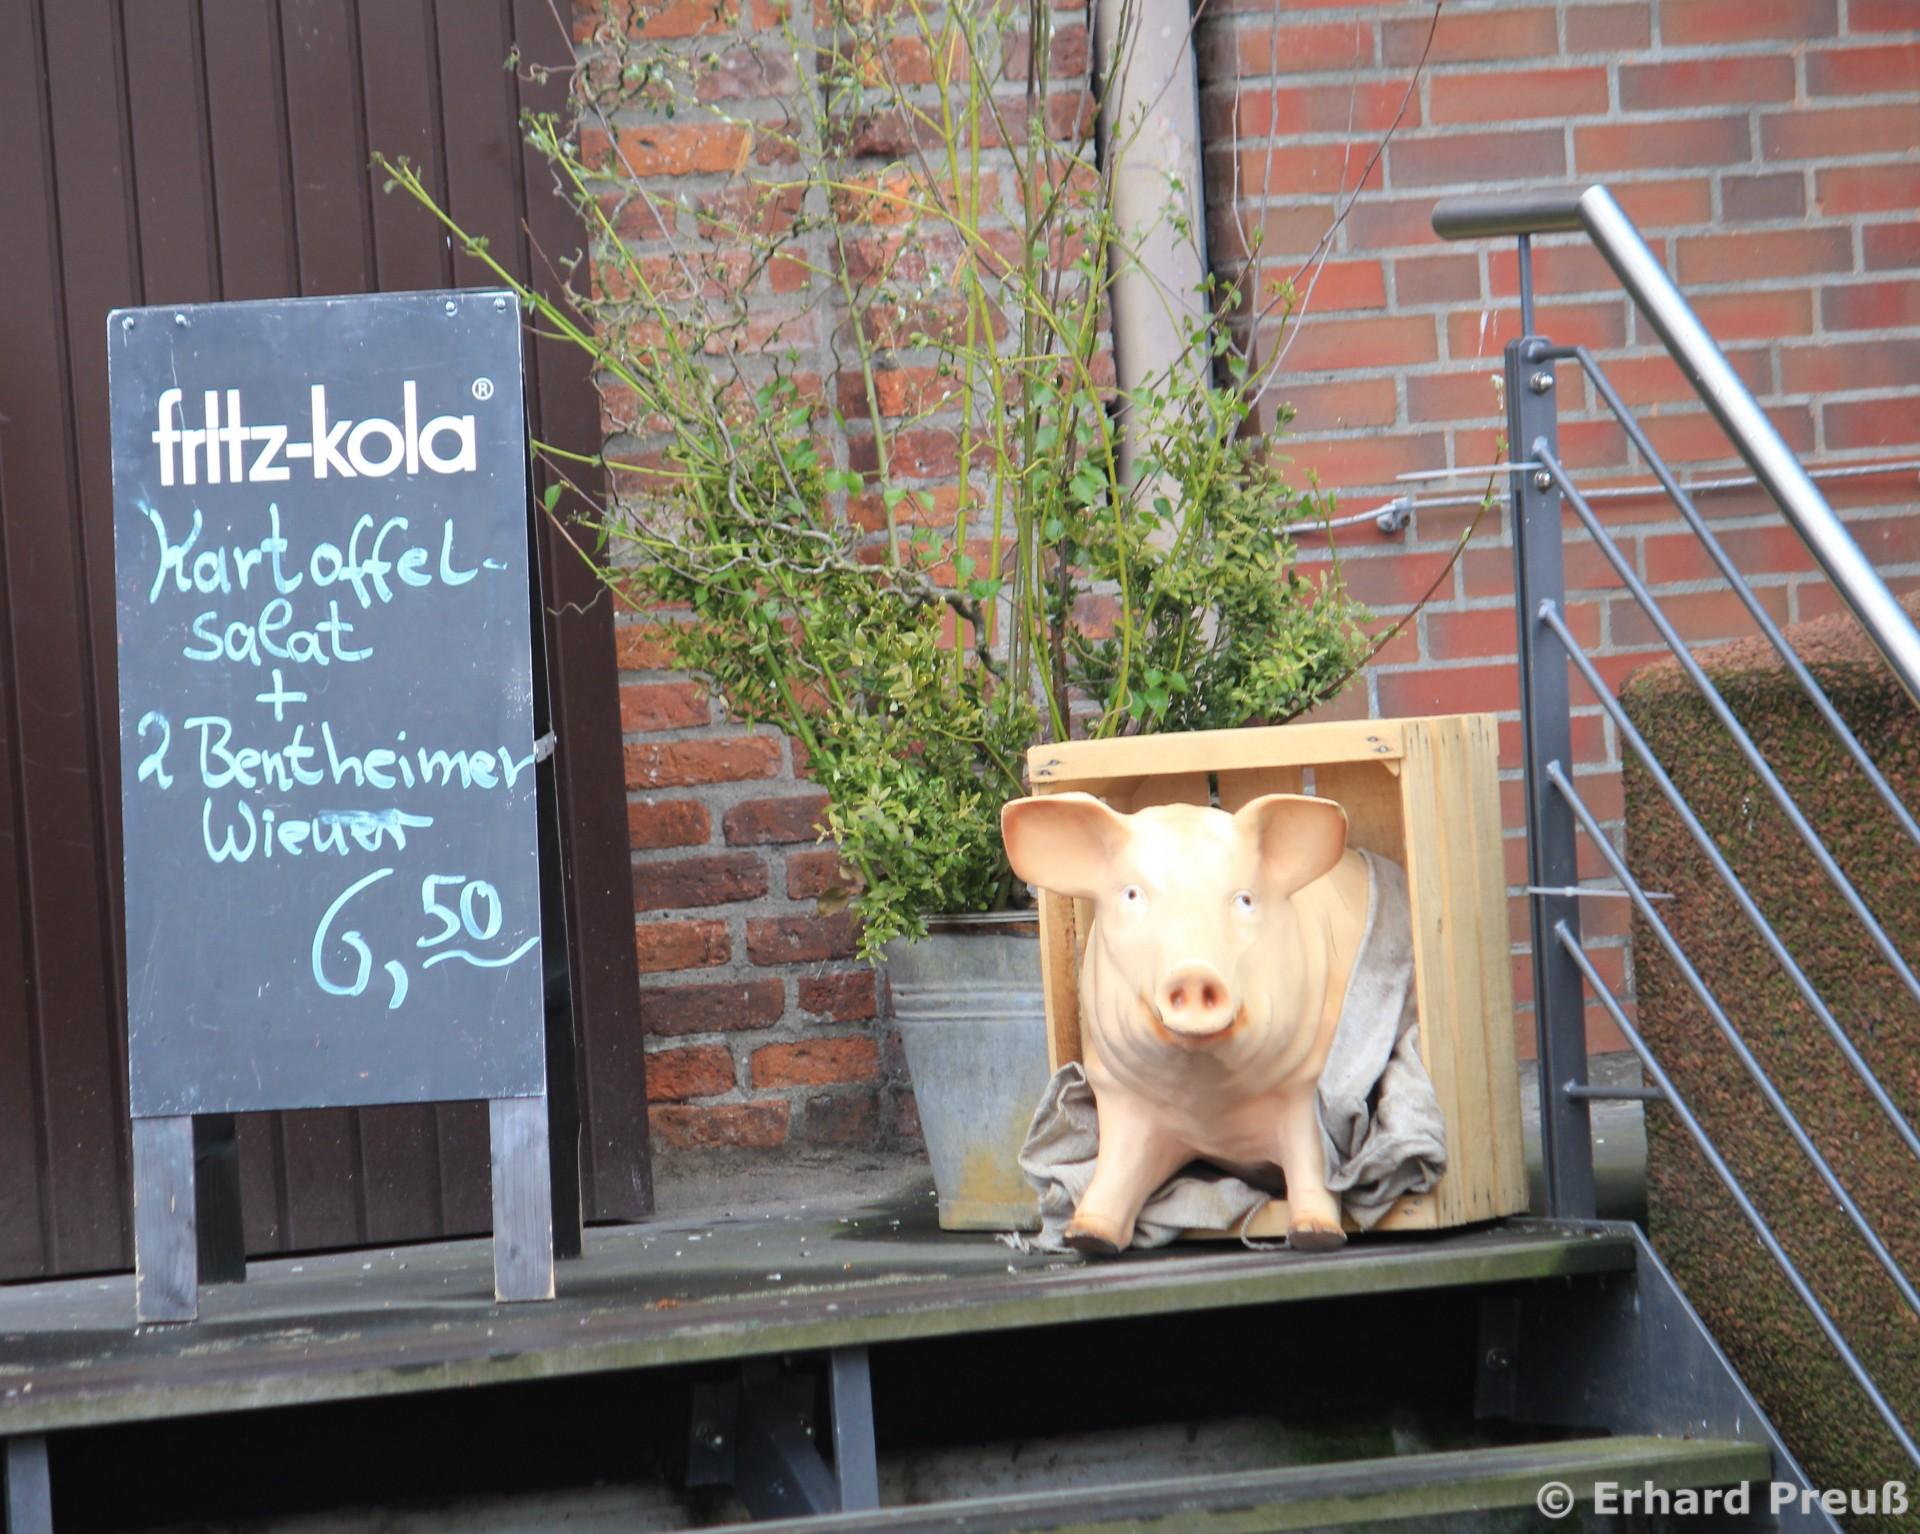 fritz-kola®
Kartoffel-
salat
+
2 Bentheimer
Wiener
6,50
© Erhard Preuß